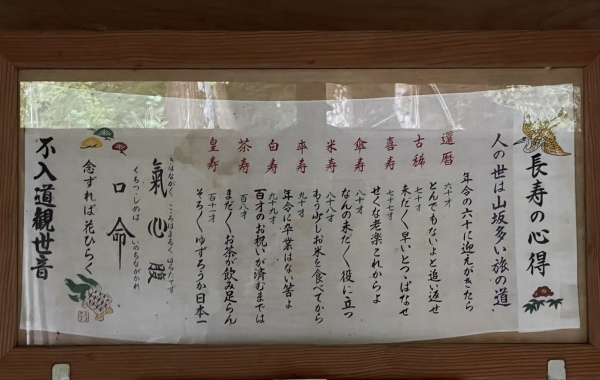 長寿の心得
人の世は山坂多い旅の道
年令の六十に迎えがきたら
還暦 六十才 とんでもないよと追い返せ
古稀 七十才 未だ〱早いとつっぱなせ
喜寿 七十七才 せくな老楽これからよ
傘寿 八十才 なんの未だ〱役に立つ
米寿 八十八才 もう少しお米を食べてから
卒寿 九十才 年令に卒業はない筈よ
白寿 九十九才 百才のお祝いが済むまでは
茶寿 百八才 まだ〱お茶が飲み足らん
皇寿 百十一才 そろ〱ゆずろうか日本一
氣心腹
きはながく こころはまるく はらたてず
口命
くちつゝしめば いのちながかれ
念ずれば花ひらく
不入道観世音